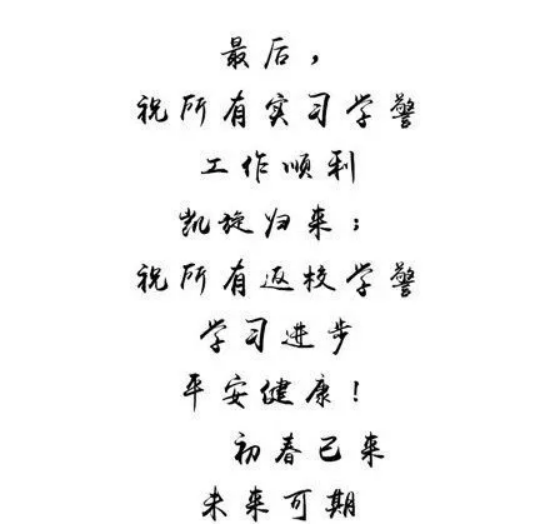 最后，
祝所有实习学警
工作顺利
凯旋归来；
祝所有返校学警
学习进步
平安健康！
初春已来
未来可期